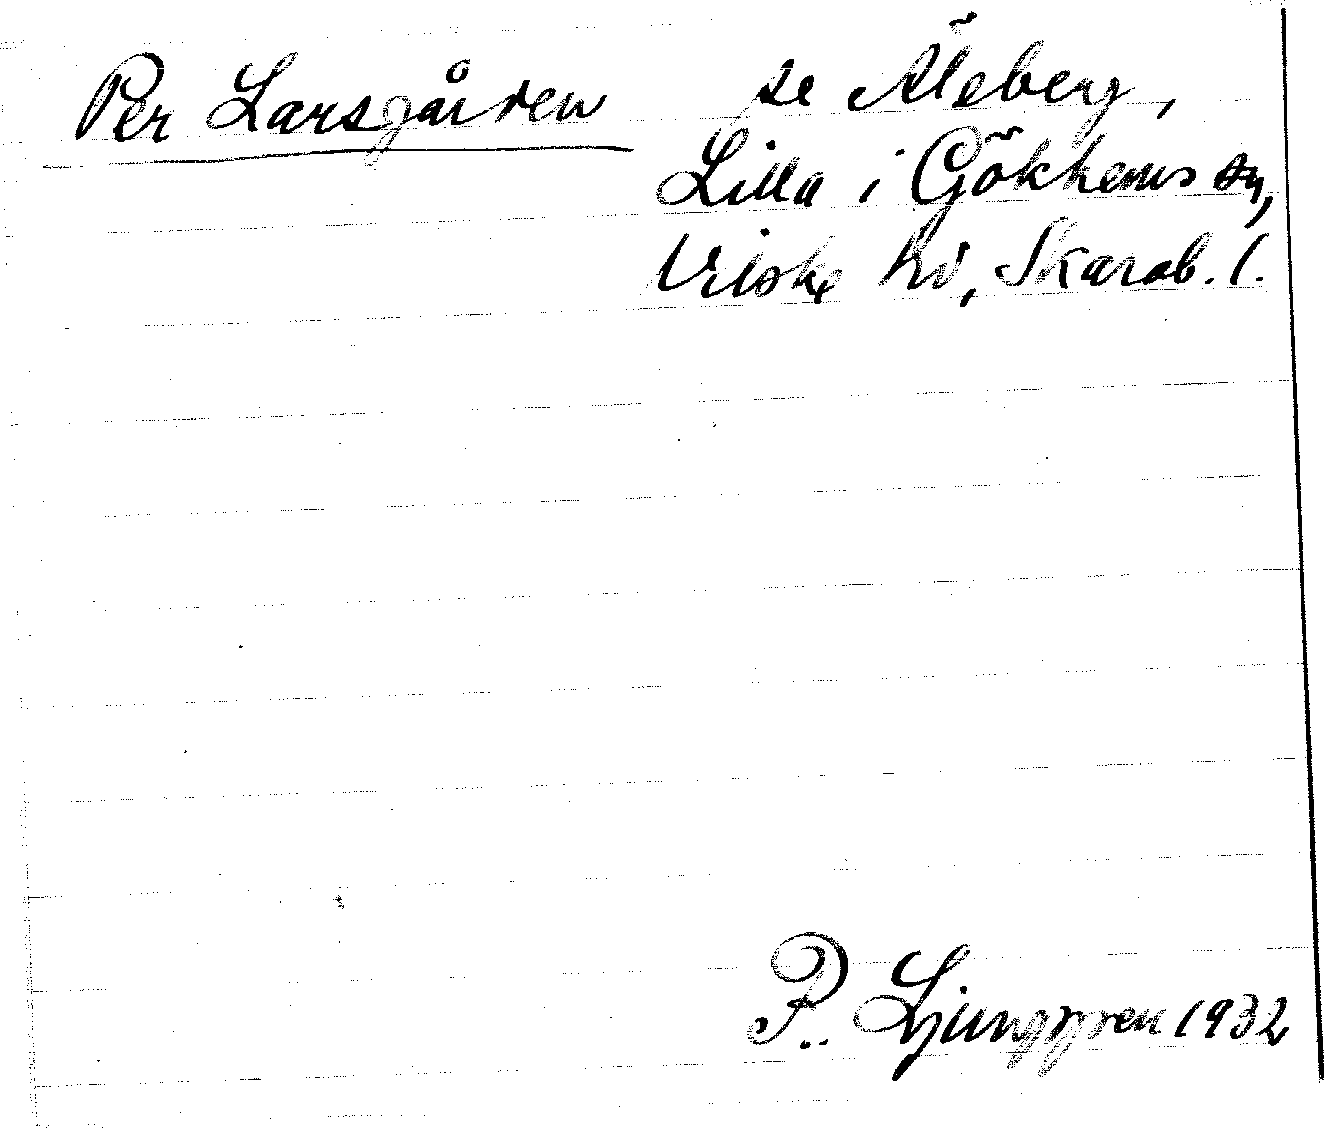 Per Larsgården se Åleberg,
Lilla i Gökhems sn,
Vilske hd, Skarab. l.
P. Ljunggren 1932